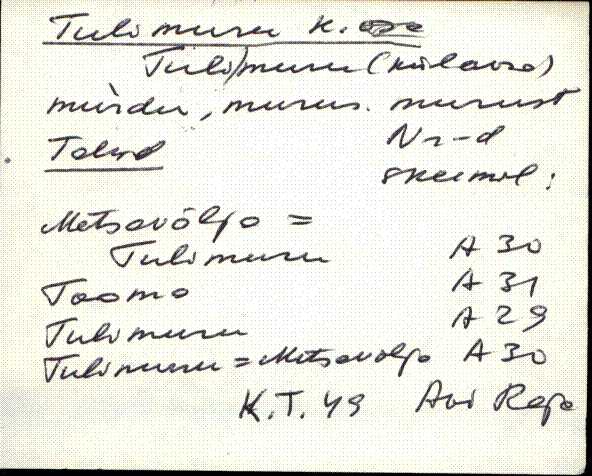 Tulimuru K.
Tuli/muru (külaosa)
murdu, murus. murust
Talud Nr-d
skeemil:
Metsavälja =
Tulimuru A 30
Toomo A 31
Tulimuru A 29
Tulimuru = Metsavälja A 30
K.T. 49 Avi Raja